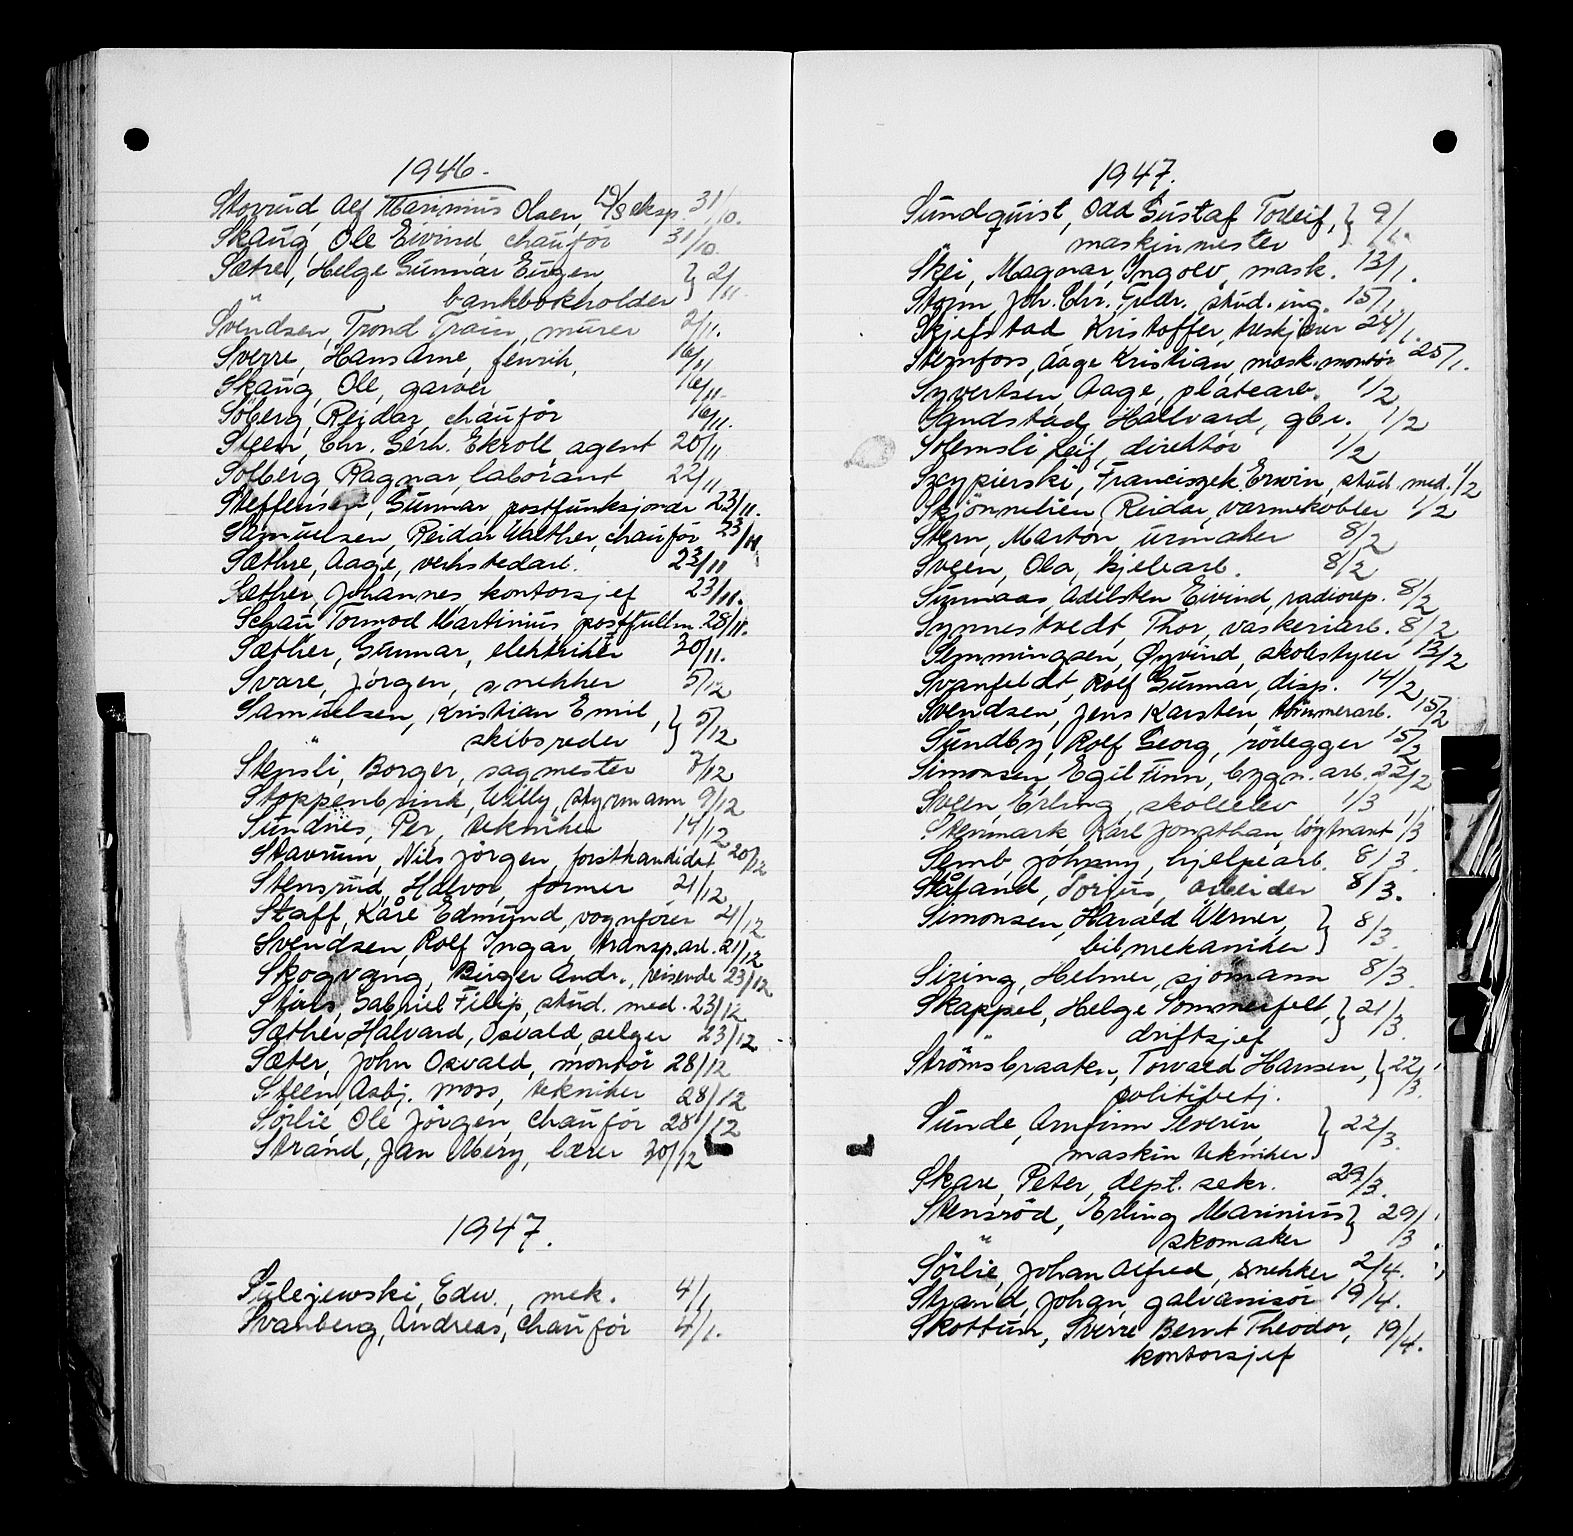 1946.
Storrud, Alf Marinius Olsen, eksp. 31/10.
Skaug, Ole Eivind, chauffør 31/10.
Sætre, Helge Gunnar Eugen } 2/11.
" bankbokholder
Svendsen, Trond Train, murer 2/11.
Sverre, Hans Arne, fenrik, 16/11
Skaug, Ole, garver 16/11.
Söberg, Reidar, chauför 16/11.
Steen, Chr. Gerh. Ekroll, agent 20/11
Solberg, Ragnar, laborant 22/11
Steffensen, Gunnar, postfunksjonær 23/11.
Samuelsen, Reidar Walther, chauför 23/11
Sæthre, Aage, verkstedarb. 23/11
Sæther, Johannes, kontorsjef 23/11.
Schau Tormod Martinius, postfullm. 28/11.
Sæther, Gunnar, elektriker 30/11.
Svare, Jörgen, snekker 5/12
Samuelsen, Kristian Emil, } 5/12
" skibsreder
Stensli, Borger, sagmester 7/12
Stoppenbrink, Willy, styrmann 9/12
Sundnes, Per, tekniker 14/12
Stavrum, Nils Jörgen, forstkandidat 20/12
Stensrud, Halvor, former 21/12
Staff, Kåre Edmund, vognförer 21/12
Svendsen, Rolf Ingar, transp.arb. 21/12
Skogvang, Birger Andr., reisende 23/12
Gabriel Filip, stud. med. 23/12
Sæther, Halvard, Osvald, selger 23/12
Sæter, John Osvald, montör 28/12
Steen, Asbj. Moss, tekniker 28/12
Sörlie Ole Jörgen, chauför 28/12
Strand, Jan Mery, lærer 30/12
1947.
Sulejewski, Edw., mek. 4/1
Svanberg, Andreas, chauför 4/1.
1947.
Sundquist, Odd Gustaf Torleif, } 9/1.
maskinmester
Skei, Magnar, Ingolv, mask. 13/1.
Storm, Joh. Chr. Fredr. stud. ing. 15/1
Skjefstad Kristoffer, treskjærer 24/1.
Sternfors, Aage Kristian, mask.montör 25/1.
Syvertsen, Aage, platearb. 1/2
Sandstad, Hallvard, gbr. 1/2
Solemsli, Leif, direktör 1/2
Szcypierski, Franciszek Erwin, stud. med. 1/2
Skjönnelien, Reidar, varmekobler 1/2
Stern, Marton, urmaker 8/2
Sveen, Ola, kjelearb. 8/2
Sunnaas, Adelsten Eivind, radiorep. 8/2
Synnestvedt, Thor, vaskeriarb. 8/2
Semmingsen, Øyvind, skolestyrer 13/2
Svanfeldt, Rolf Gunnar, disp. 14/2
Svendsen, Jens Karsten, tömmerarb. 15/2
Sundby, Rolf Georg, rörlegger 15/2
Simonsen, Egil Finn, bygn.arb. 22/2
Sveen, Erling, skoleelev 1/3
Stenmark Karl Jonathan, löytnant 1/3
Semb, Johnny, hjelpearb. 8/3.
Torjus, arbeider 8/3.
Simonsen, Harald Werner, } 8/3.
bilmekaniker
Sizing, Helmer, sjömann 8/3.
Skappel, Helge Sommerfelt, } 21/3.
" driftsjef
Strömsbraaten, Torvald Hansen, } 22/3.
politibetj.
Sunde, Arnfinn Severin } 22/3.
maskintekniker
Skare, Peter, dept. sekr. 29/3.
Stensröd, Erling Marinius } 29/3
" skomaker
Sörlie, Johan Alfred, snekker 2/4.
Strand, Johan, galvanisör 19/4.
Skottun, Sverre Bernt Theodor, 19/4.
kontorsjef